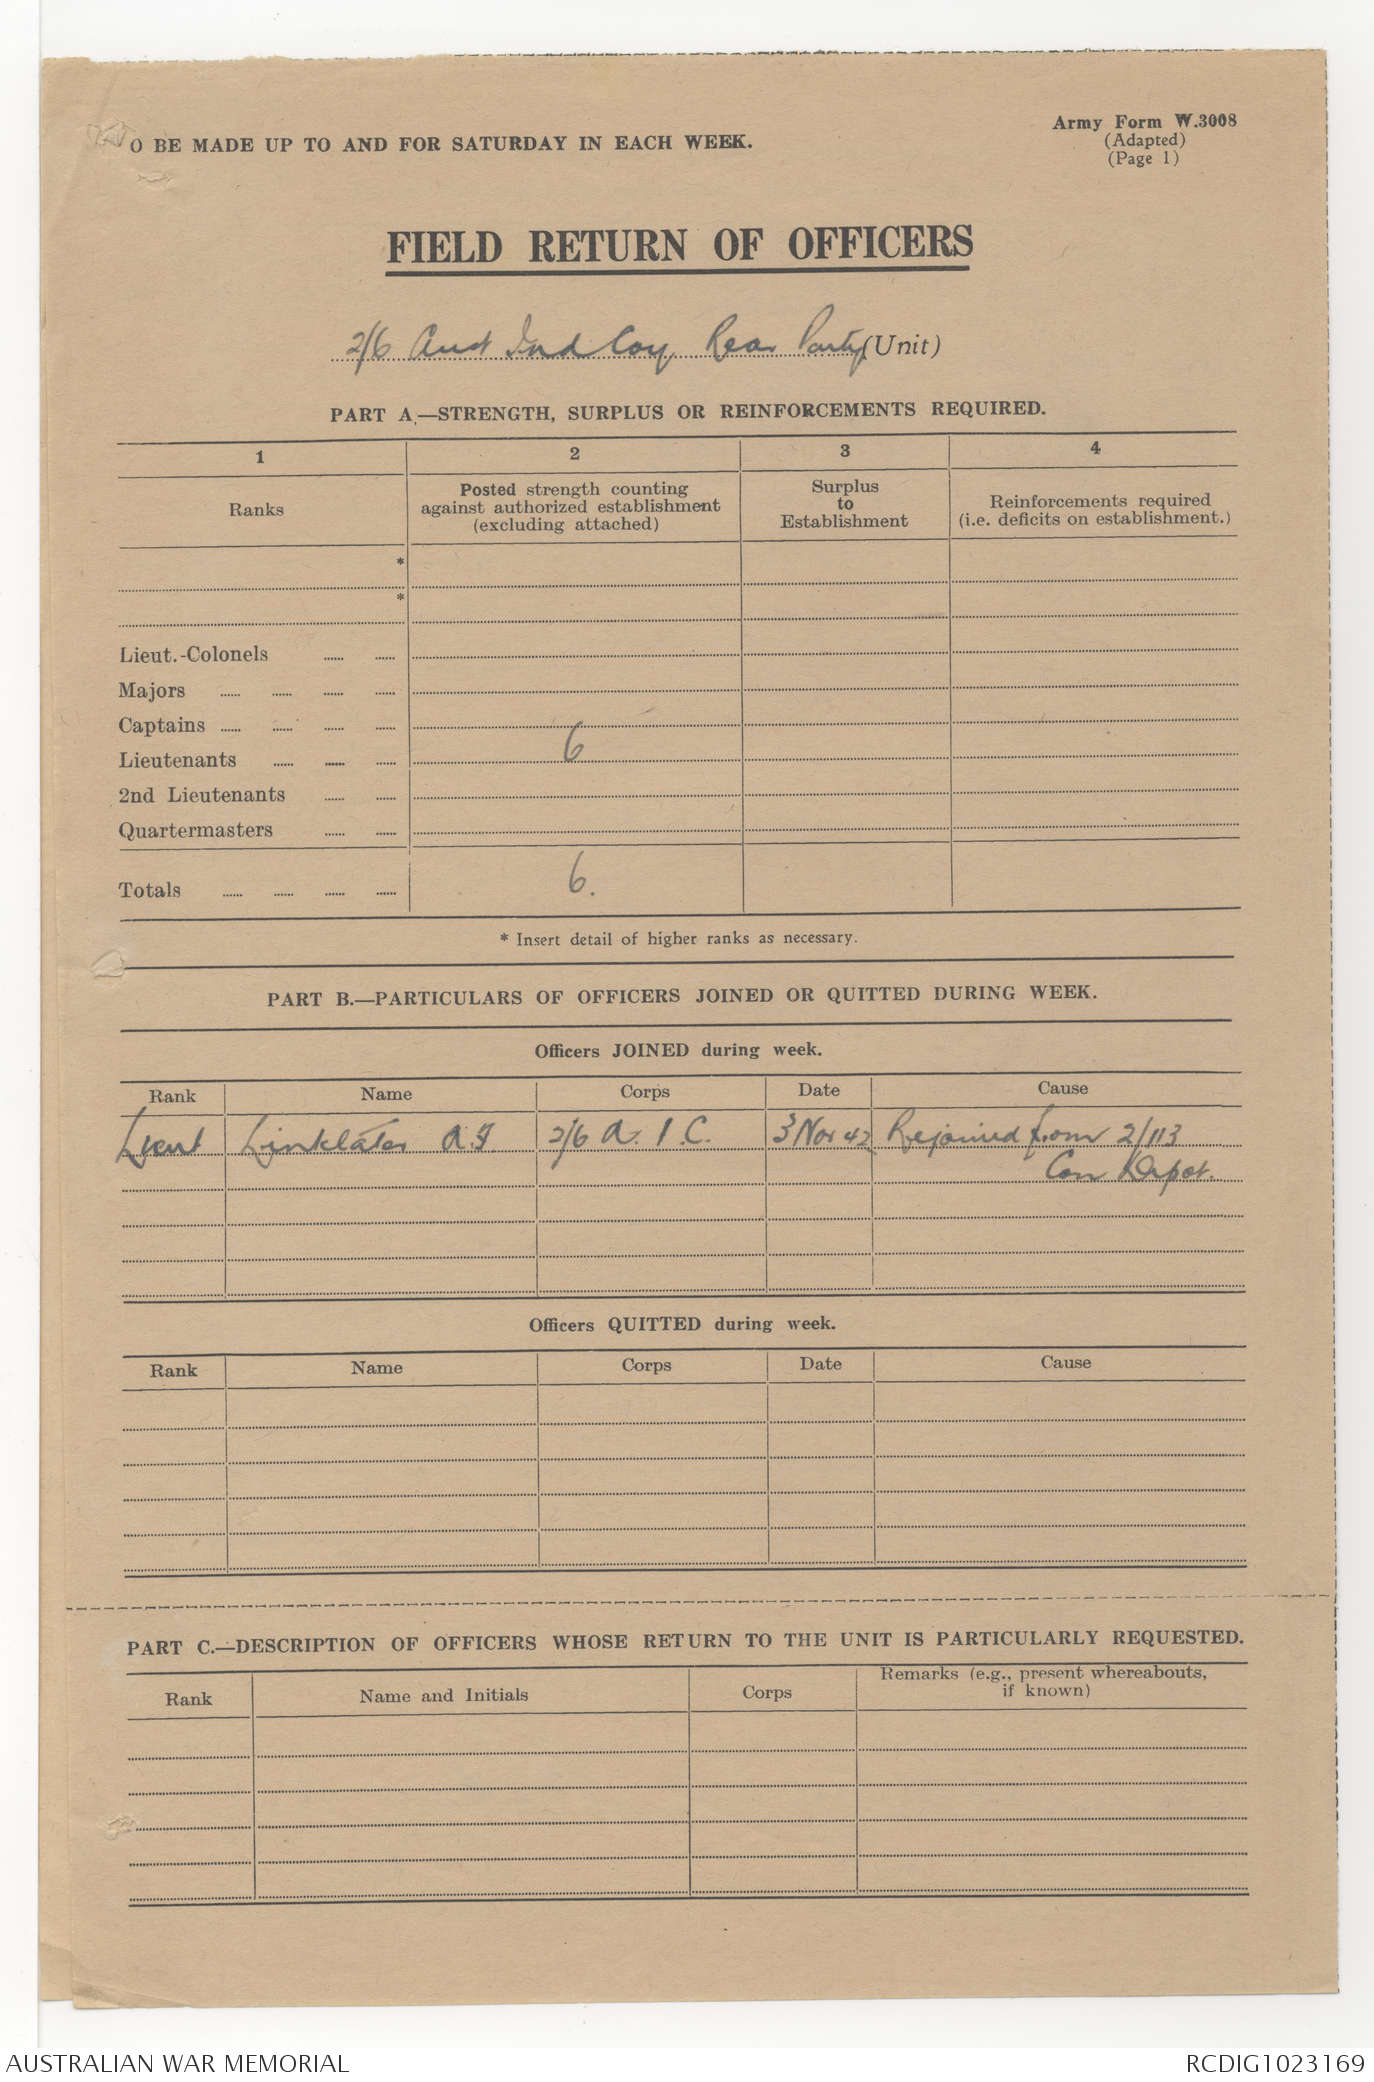 O BE MADE UP TO AND FOR SATURDAY IN EACH WEEK.
Army Form W.3008
(Adapted)
(Page 1)
FIELD RETURN OF OFFICERS
2/6 Aust Ind Coy Rear Party (Unit)
PART A.—STRENGTH, SURPLUS OR REINFORCEMENTS REQUIRED.
1 2 3 4
Ranks
Posted strength counting
against authorized establishment
(excluding attached)
Surplus
to
Establishment
Reinforcements required
(i.e. deficits on establishment.)
*
*
Lieut.-Colonels ...... ......
Majors ...... ...... ...... ......
Captains ...... ...... ...... ......
Lieutenants ...... ...... ...... 6
2nd Lieutenants ...... ......
Quartermasters ...... ......
Totals ...... ...... ...... ...... 6.
* Insert detail of higher ranks as necessary.
PART B.—PARTICULARS OF OFFICERS JOINED OR QUITTED DURING WEEK.
Officers JOINED during week.
Rank Name Corps Date Cause
Lieut Linklater A.J. 2/6 A. I. C. 3 Nov 42 Rejoined from 2/113
Con Depot.
Officers QUITTED during week.
Rank Name Corps Date Cause
PART C.—DESCRIPTION OF OFFICERS WHOSE RETURN TO THE UNIT IS PARTICULARLY REQUESTED.
Rank Name and Initials Corps Remarks (e.g., present whereabouts,
if known)
AUSTRALIAN WAR MEMORIAL
RCDIG1023169